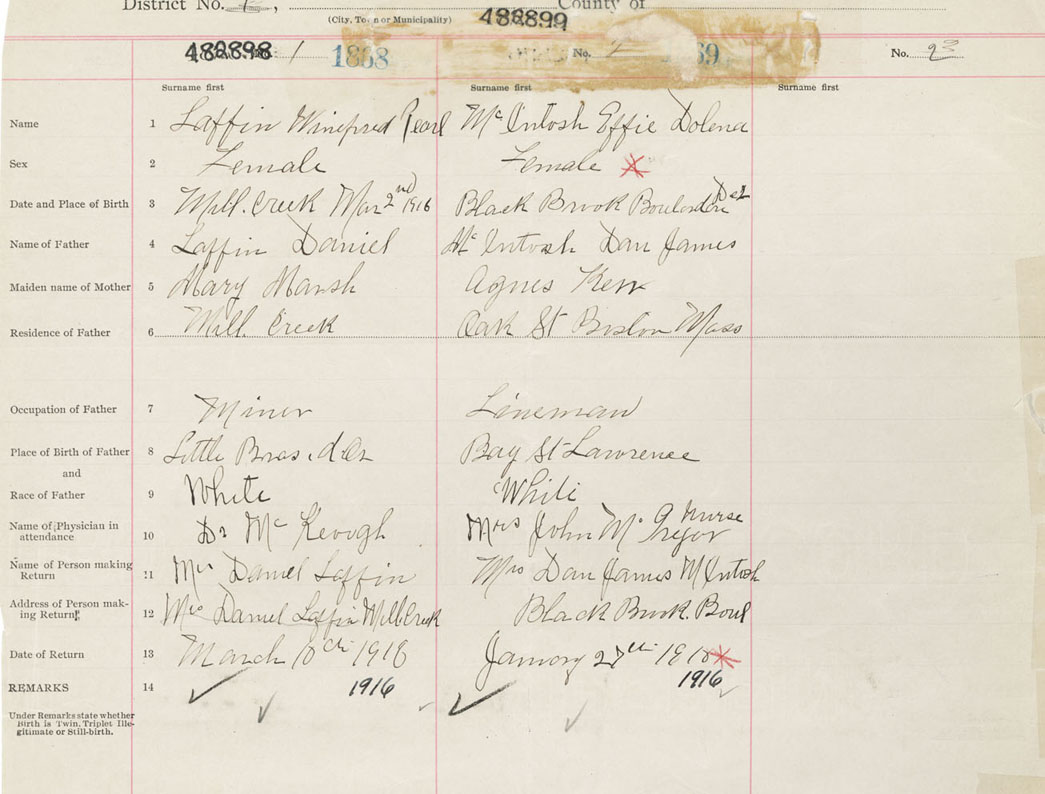 District No. County of
(City, Town or Municipality) 482899
482898 1 1868 No. 2 69 No. 23
Surname first Surname first Surname first
Name 1 Laffin Winefred Pearl McIntosh Effie Dolena
Sex 2 Female Female
Date and Place of Birth 3 Mill Creek Mar 2nd 1916 Black Brook
Name of Father 4 Laffin Daniel McIntosh Dan James
Maiden name of Mother 5 Mary Marsh Agnes Kerr
Residence of Father 6 Mill Creek Oak St Boston Mass
Occupation of Father 7 Miner Lineman
Place of Birth of Father 8 Little Bras d'Or Bay St Lawrence
and
Race of Father 9 White White
Name of Physician in
attendance 10 Dr McKeough Mrs John McGregor Nurse
Name of Person making
Return 11 Mrs Daniel Laffin Mrs Dan James McIntosh
Address of Person mak-
ing Return 12 Mrs Daniel Laffin Mill Creek Black Brook Boul
Date of Return 13 March 10th 1918 January 27th
REMARKS 14 1916 1916
Under Remarks state whether
Birth is Twin, Triplet Ille-
gitimate or Still-birth.